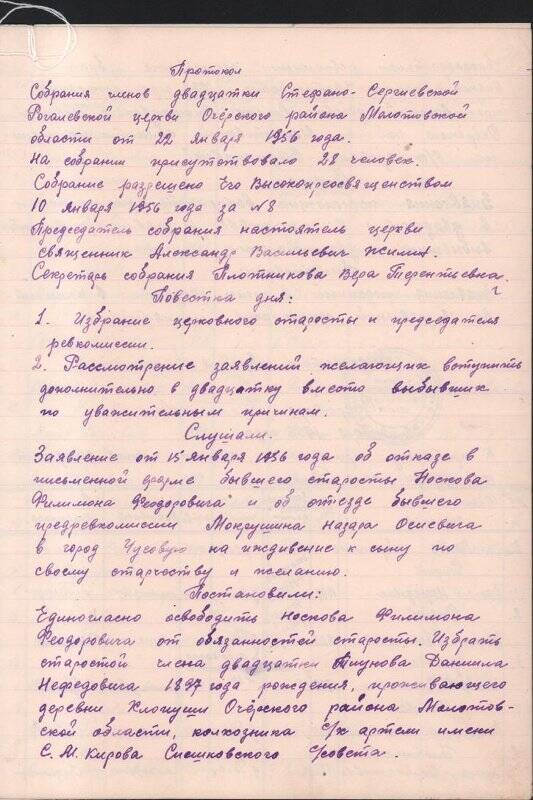 Протокол
Собрания членов двадцатки Стефано-Сергиевской
Рогалевской церкви Очёрского района Молотовской
области от 22 января 1956 года.
На собрании присутствовало 28 человек.
Собрание разрешено Его Высокопреосвященством
10 января 1956 года за №8
Председатель собрания настоятель церкви
священник Александр Васильевич Жилин.
Секретарь собрания Плотникова Вера Терентьевна.
Повестка дня:
1. Избрание церковного старосты и председателя
ревкомиссии.
2. Рассмотрение заявлений желающих вступить
дополнительно в двадцатку вместо выбывших
по уважительным причинам.
Слушали.
Заявление от 15 января 1956 года об отказе в
письменной форме бывшего старосты Носкова
Филимона Феодоровича и об отъезде бывшего
предревкомиссии Мокрушина Назара Осиевича
в город Чусовую на иждивение к сыну по
своему старчеству и желанию.
Постановили:
Единогласно освободить Носкова Филимона
Феодоровича от обязанностей старосты. Избрать
старостой члена двадцатки Плунова Даниила
Нефедовича 1897 года рождения, проживающего
деревни Хлопуши Очёрского района Молотов-
ской области, колхозника с/х артели имени
С. М. Кирова Спешковского с/совета.